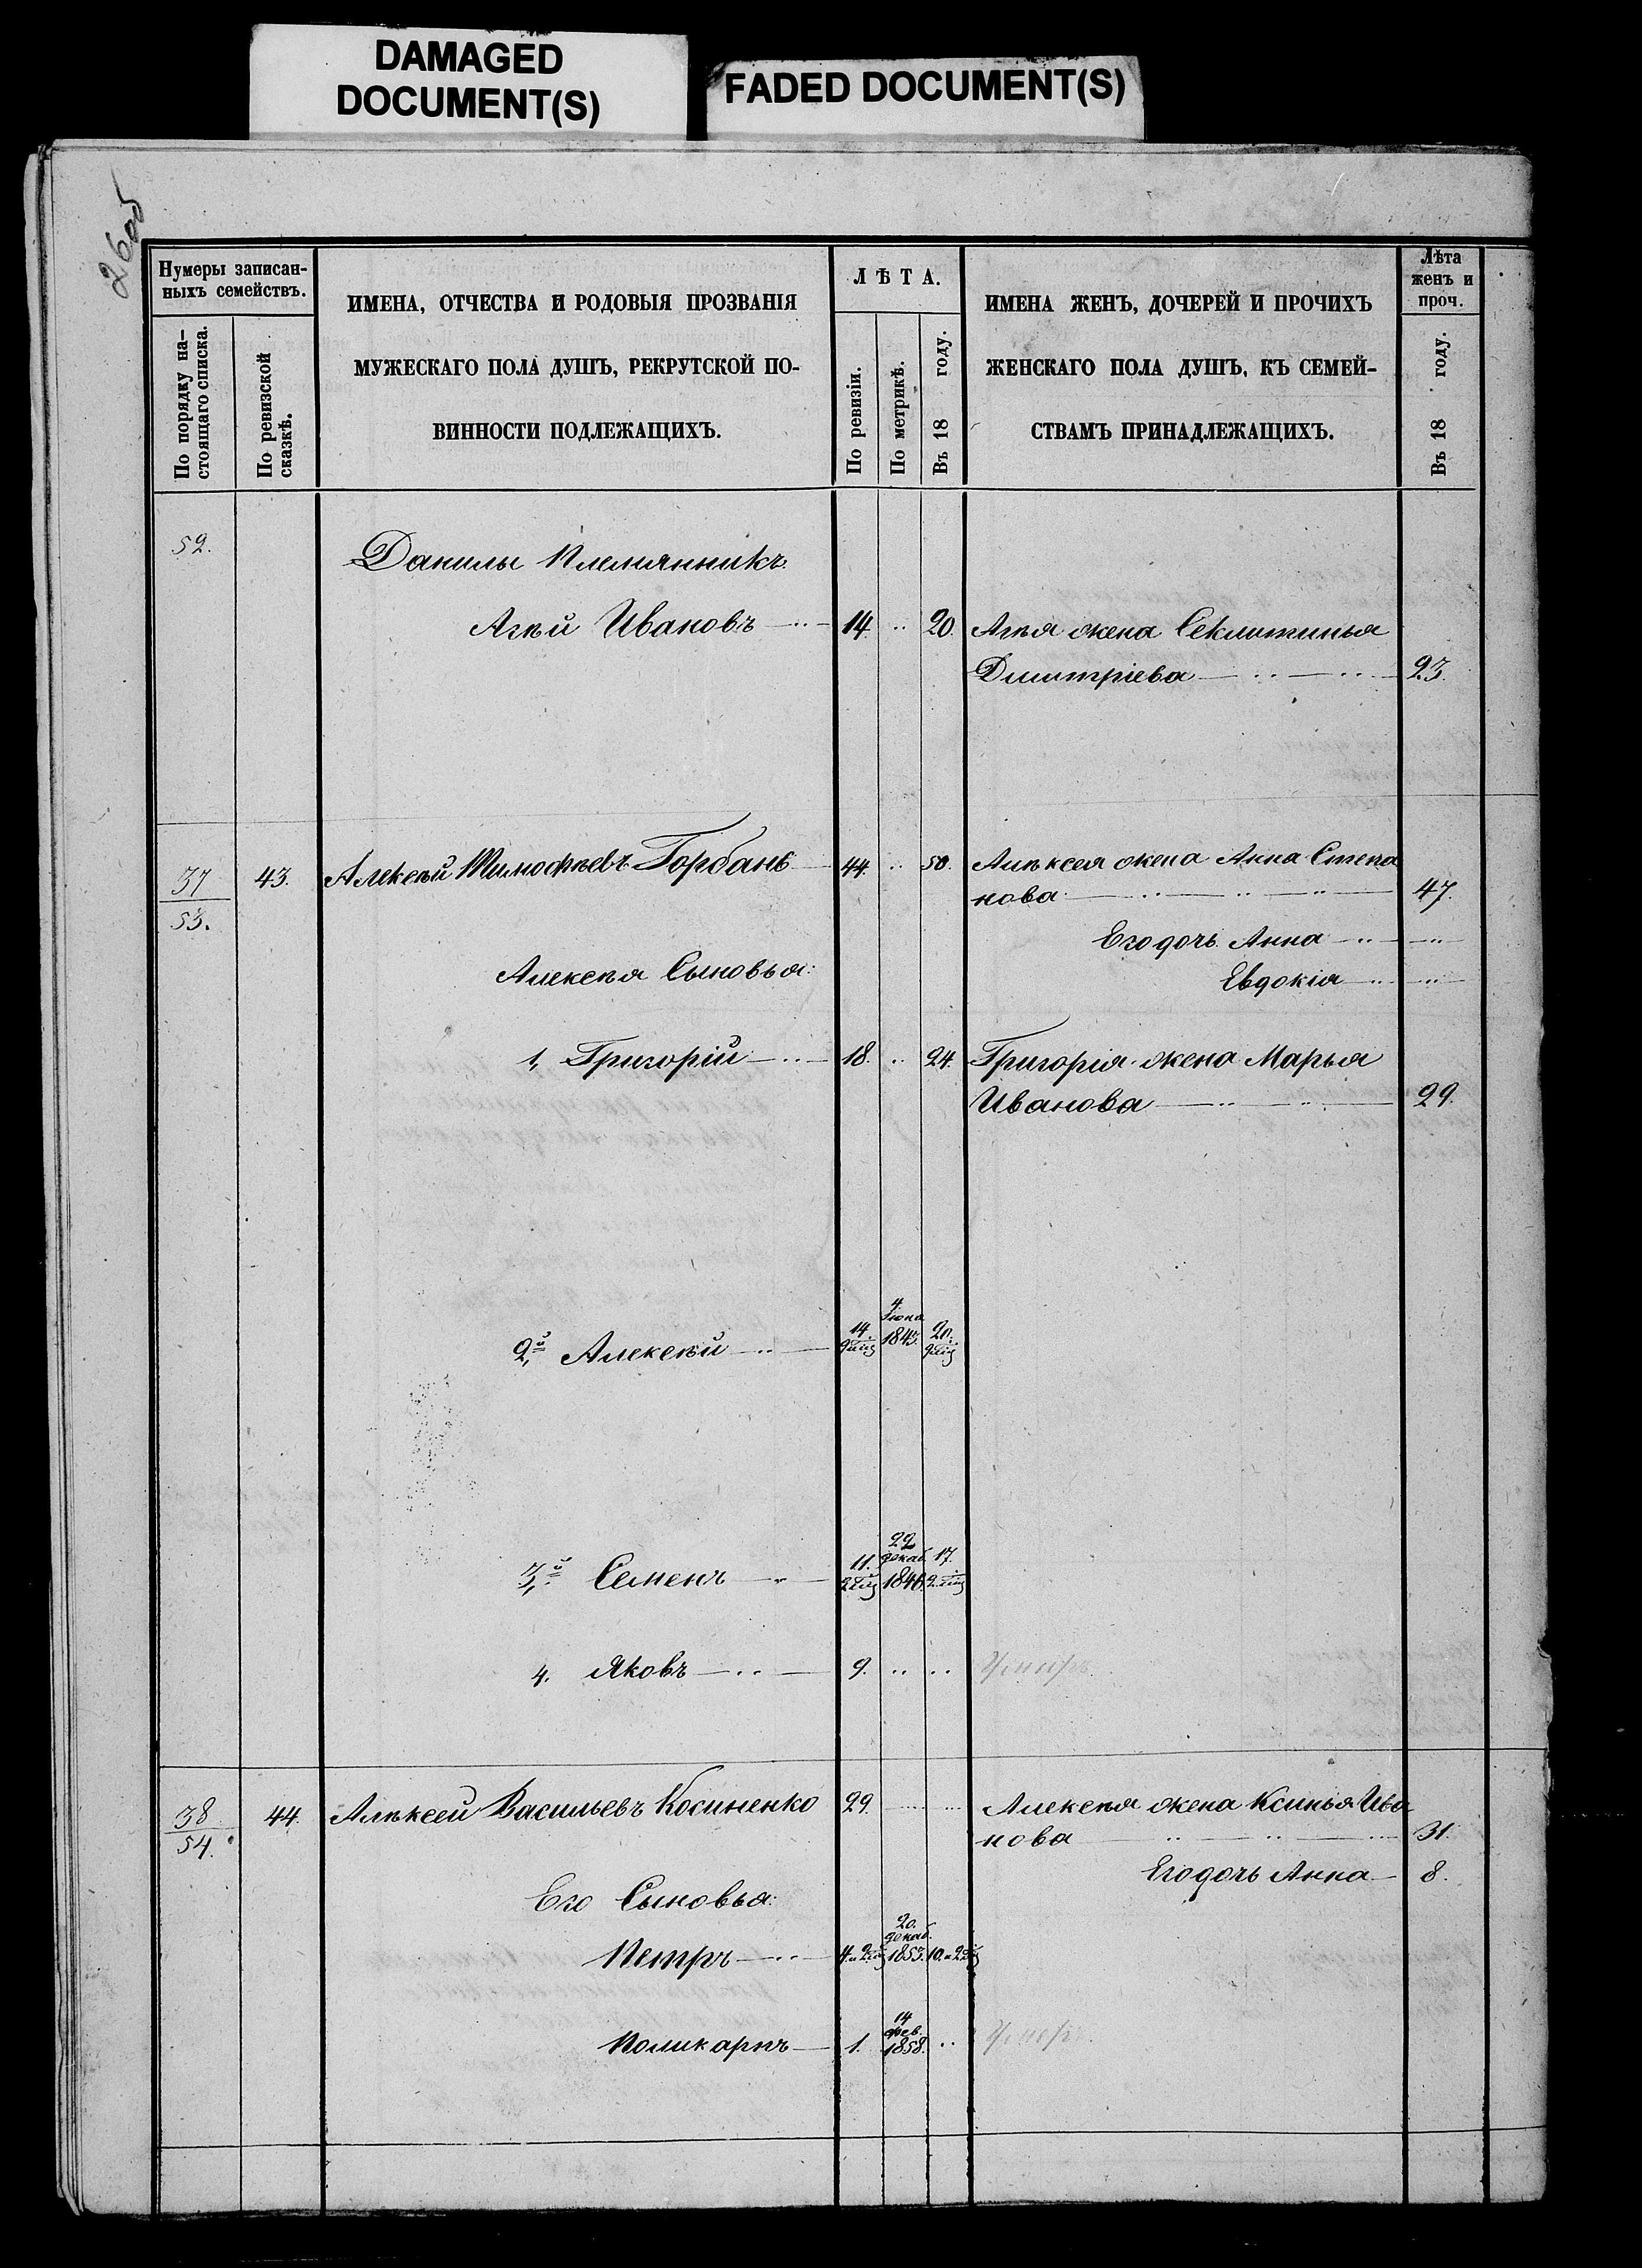 DAMAGED
DOCUMENT(S)
FADED DOCUMENT(S)
26 об
Нумеры записан-
ныхъ семействъ.
По порядку на-
стоящаго списка.
По ревизской
сказкѣ.
ИМЕНА, ОТЧЕСТВА И РОДОВЫЯ ПРОЗВАНІЯ
МУЖЕСКАГО ПОЛА ДУШЪ, РЕКРУТСКОЙ ПО-
ВИННОСТИ ПОДЛЕЖАЩИХЪ.
ЛѢТА.
По ревизіи.
По метрикѣ.
Въ 18 году.
ИМЕНА ЖЕНЪ, ДОЧЕРЕЙ И ПРОЧИХЪ
ЖЕНСКАГО ПОЛА ДУШЪ, КЪ СЕМЕЙ-
СТВАМЪ ПРИНАДЛЕЖАЩИХЪ.
Лѣта
женъ и
проч.
Въ 18 году.
52.
Данилы племянникъ
Агѣй Ивановъ 14 20. Агѣя жена Секлитинья
Дмитріева 23.
37 43. Алексѣй Тимофѣевъ Горбань 44. 50. Алѣксея жена Анна Степа
53. нова 47.
Его дочь Анна
Алексѣя Сыновья: Евдокія
1, Григорій 18. 24. Григорія жена Марья
Иванова 29.
4
Іюна
2,й Алексѣй 14. 1843. 20.
22
декаб.
3,й Семенъ 11. 1846. 17.
4. Яковъ 9. Умеръ
38 44. Алѣксей Васильевъ Косиненко 29. Алексѣя жена Ксинья Ива
54. нова 31.
Его дочь Анна 8.
Его Сыновья:
20.
декаб.
Петръ 4. и 2 1853. 10. и 2
14
фев.
Поликарпъ 1. 1858. Умеръ